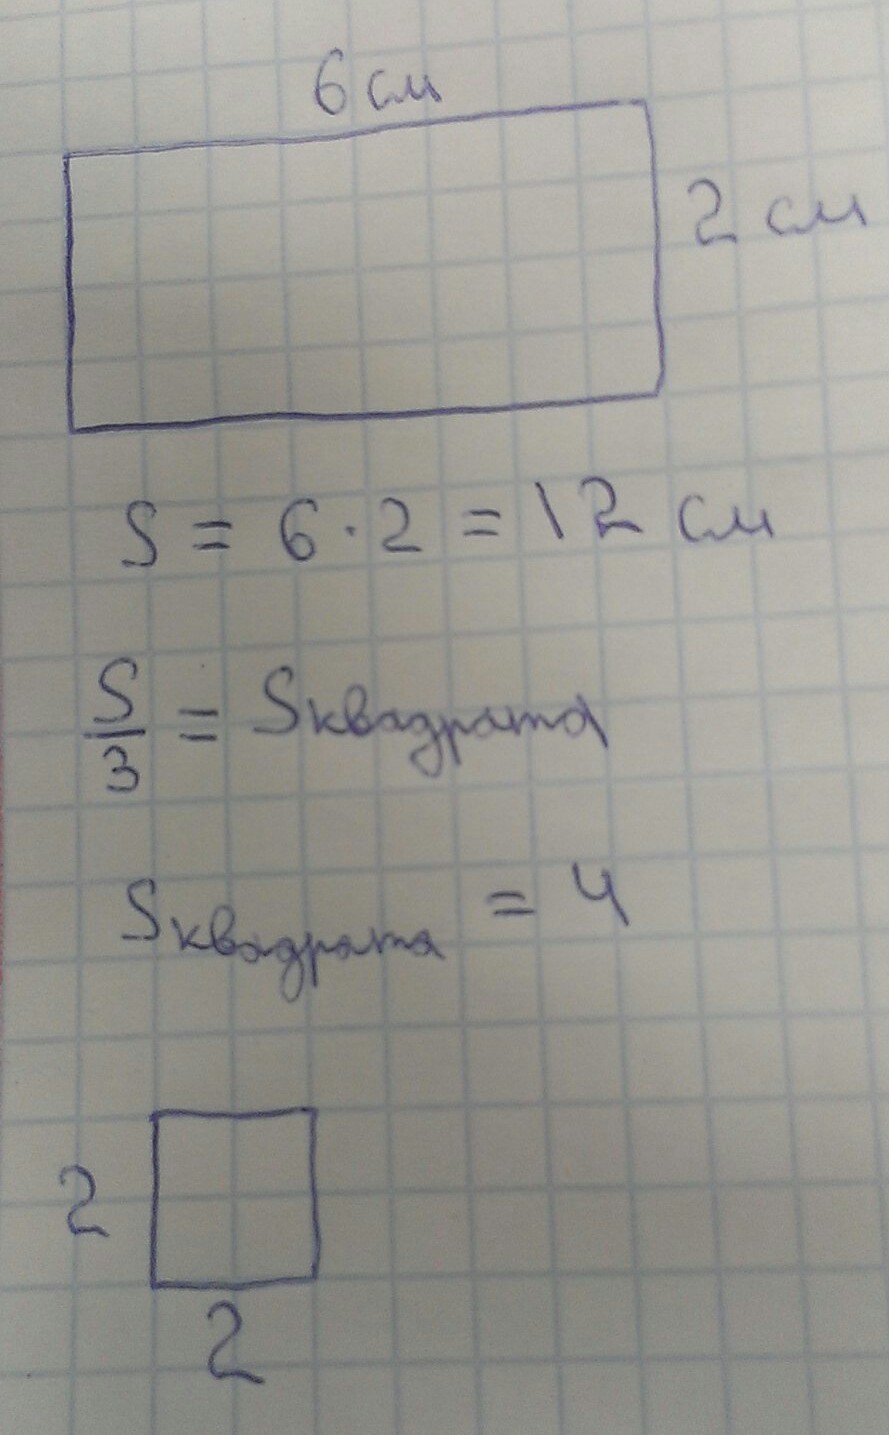 6 см
2 см
S = 6 · 2 = 12 см
S/3 = Sквадрата
Sквадрата = 4
2
2